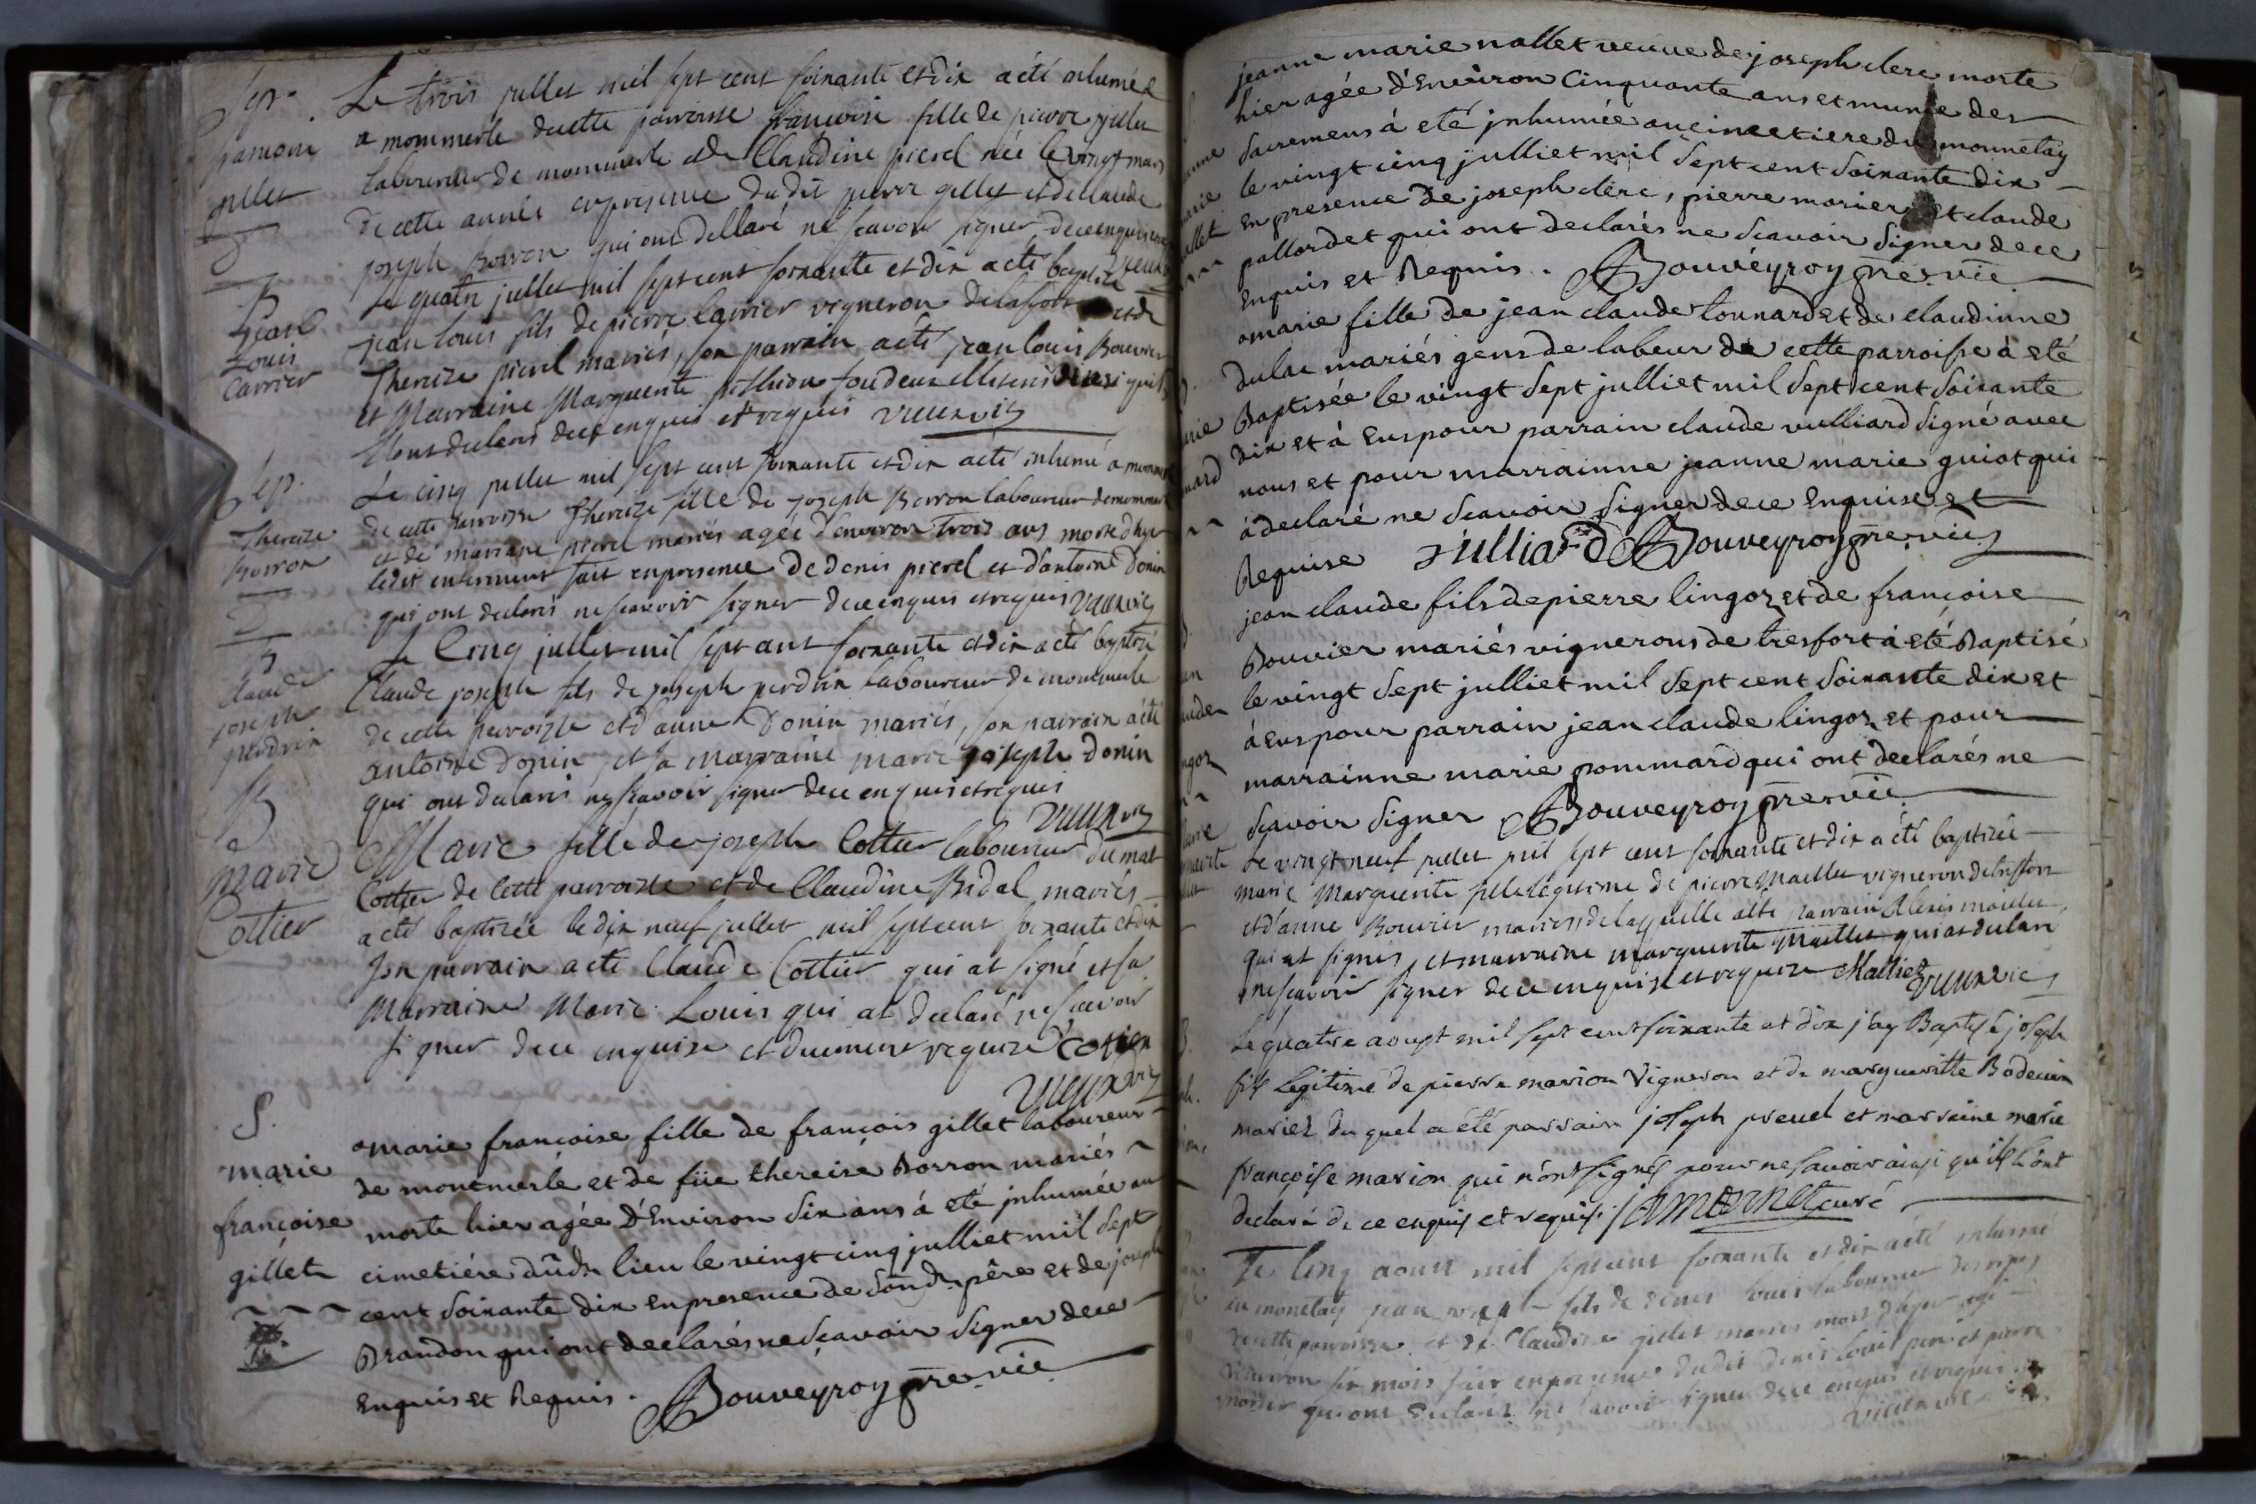 Sep.
francoise
gillet
Le trois juillet mil sept cent soixante et dix a eté inhumée
a mommerle de cette parroisse francoise fille de pierre gillet
laboureur de mommerle et de Claudine pierel née le vingt mars
de cette année en presence du dit pierre gillet et de Claude
joseph Borron qui ont declaré ne scavoir signer de ce enquis
B
jean
Louis
Carrier
Le quatre juillet mil sept cent soixante et dix a eté baptisé
jean louis fils de pierre Carrier vigneron de
Thereze pierel mariés, son parrain a eté jean louis Bouvier
et Marraine Marguerite
l'ont declaré de ce enquis et requis vieux vic
Sep.
Thereze
Borron
Le cinq juillet mil sept cent soixante et dix a eté inhumé a
de cette parroisse Thereze fille de joseph Borron laboureur de
et de mariane pierel mariés agée d'environ trois ans morte d'hyer
ledit enterrement fait en presence de denis pierel et d'antoine Donin
qui ont declarés ne scavoir signer de ce enquis et requis vieux vic
B
Claude
joseph
perdrix
Le Cinq juillet mil sept cent soixante et dix a eté baptisé
Claude joseph fils de joseph perdrix laboureur de montmerle
de cette parroisse et d'anne Donin mariés, son parrain a eté
antoine Donin, et sa marraine marie joseph Donin
qui ont declarés ne scavoir signer de ce enquis et requis
vieux vic
B
Marie
Cottier
Marie fille de joseph Cottier laboureur du mat
Cottier de cette parroisse et de Claudine Bidal mariés
a eté baptisée le dix neuf juillet mil sept cent soixante et dix
son parrain a eté Claude Cottier qui at signé et sa
Marraine Marie Louis qui at declaré ne scavoir
signer de ce enquise et duement requise Cotier
vieux vic
S.
marie
françoise
gillet
marie françoise fille de françois gillet laboureur
de montmerle et de füe thereise Borron mariés
morte hier agée d'Environ six ans à eté jnhumée au
cimetiére dudt lieu le vingt cinq julliet mil sept
cent soixante dix en presence de sondt pére et de joseph
Brandon qui ont declarés ne scavoir signer de ce
enquis et requis. Bouveyroy pre. vic
jeanne marie nallet veuve de joseph clerc morte
hier agée d'Environ cinquante ans et munie des
sacremens à eté jnhumée au cimetiere du monnetay
le vingt cinq julliet mil sept cent soixante dix
en presence de joseph clerc, pierre morier et claude
pallordet qui ont declarés ne scavoir signer de ce
enquis et requis. Bouveyroy pre. vic
marie fille de jean claude tounard et de claudinne
dulac mariés gens de labeur de cette parroisse à eté
Baptisée le vingt sept julliet mil sept cent soixante
dix et à eus pour parrain claude vulliard signé avec
nous et pour marrainne jeanne marie guiot qui
à declaré ne scavoir signer de ce enquise et
Requise Vulliard Bouveyroy pre. vic
jean claude fils de pierre lingoz et de françoise
Bouvier mariés vignerons de tresfort à eté Baptisé
le vingt sept julliet mil sept cent soixante dix et
à eus pour parrain jean claude lingoz et pour
marrainne marie pommard qui ont declarés ne
scavoir signer Bouveyroy pre. vic
Le vingt neuf juillet mil sept cent soixante et dix a été baptisée
marie Marguerite fille legitime de pierre Maillet vigneron de
et d'anne Bouvier mariés de laquelle a été parrain Alexis
qui at signés, et marraine marguerite Maillet qui at declaré
ne scavoir signer de ce enquise et requise Malliet vieux vic
Le quatre aoust mil sept cent soixante et dix j'ay Baptisé joseph
fils Legitime de pierre marion vigneron et de margueritte Bodevin
mariez du quel a été parrain joseph prevel et marraine marie
françoise marion qui n'ont signés pour ne savoir ainsi qu'ils l'ont
declaré de ce enquis et requis. jamornet curé
Le Cinq aoust mil sept cent soixante et dix a eté inhumé
au monetay jean fils de denis louis laboureur
de cette parroisse et de Claudine gillet mariés mort d'hyer agé
d'environ six mois fait en presence dudit denis louis pere et pierre
morier qui ont declaré ne scavoir signer de ce enquis et requis
vieux vic